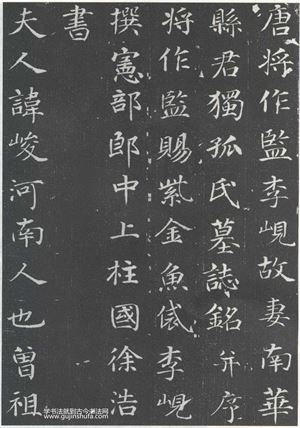 唐将作監李峴故妻南華
縣君獨孤氏墓誌銘并序
将作監賜紫金魚袋李峴
撰憲部郎中上柱國徐浩
書
夫人諱峻河南人也曽祖
学书法就到古今书法网
www.gujinshufa.com